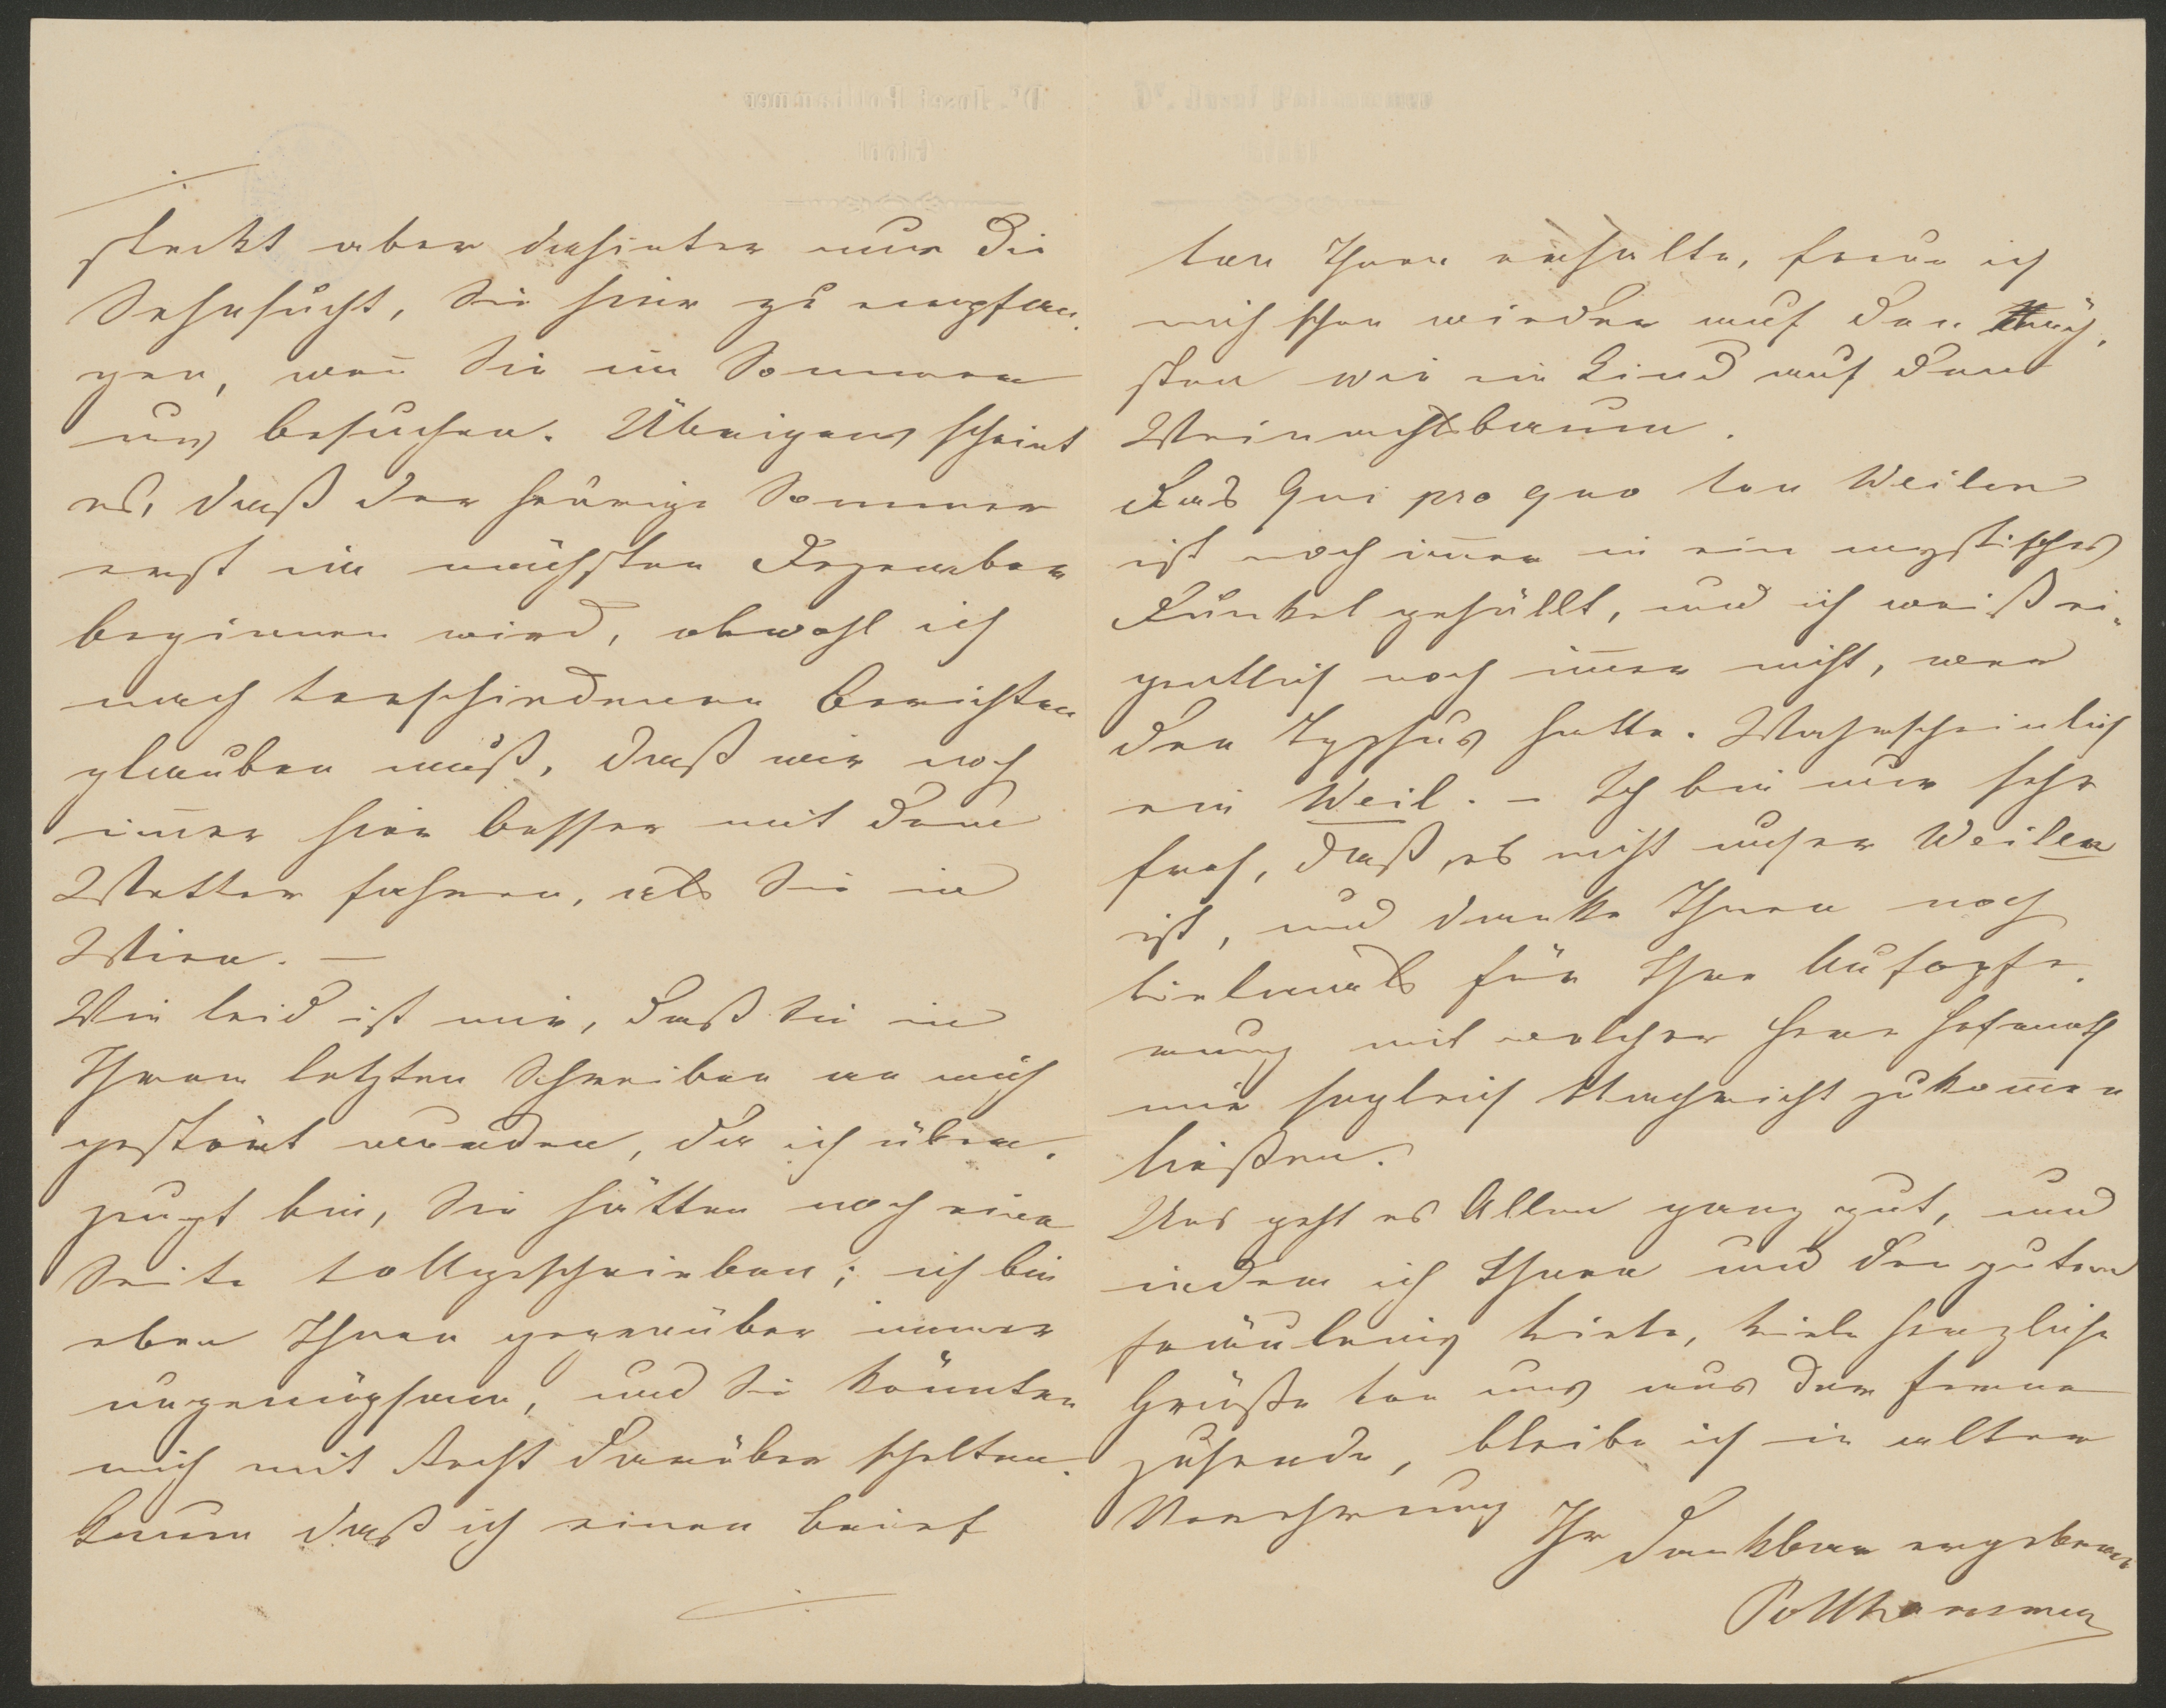 steckt aber dahinter nur die
Sehnsucht, Sie hier zu empfan-
gen, wen̄ Sie im Sommer
uns besuchen. Übrigens scheint
es, daß der heurige Sommer
erst im nächsten Dezember
beginnen wird, obwohl ich
nach verschiedenen Berichten
glauben muß, daß wir noch
im̄er hier besser mit dem
Wetter fahren, als Sie in
Wien. —
Wie leid ist mir, daß Sie in
Ihrem letzten Schreiben an mich
gestört wurden, da ich über-
zeugt bin, Sie hätten noch eine
Seite vollgeschrieben; ich bin
eben Ihnen gegenüber immer
ungenügsam, und Sie könnten
mich mit Recht darüber schelten.
Kaum daß ich einen Brief
von Ihnen erhalte, freue ich
mich schon wieder auf den näch-
sten wie ein Kind auf den
Weinachtsbaum.
Das Qui pro quo von Weilen
ist noch im̄er in ein mystisches
Dunkel gehüllt, und ich weiß ei-
gentlich noch im̄er nicht, wer
den Typhus hatte. Wahrscheinlich
ein Weil. – Ich bin nur sehr
froh, daß es nicht unser Weilen
ist, und danke Ihnen noch
vielmals für Ihre Aufopfe-
rung mit welcher Herr Hofrath
mir sogleich Nachricht zukom̄en
ließen.
Uns geht es Allen ganz gut, und
indem ich Ihnen und den guten
Fräuleins viele, viele herzliche
Grüße von uns aus der Ferne
zusende, bleibe ich in alter
Verehrung
Ihr dankbar ergebener
Pollhammer